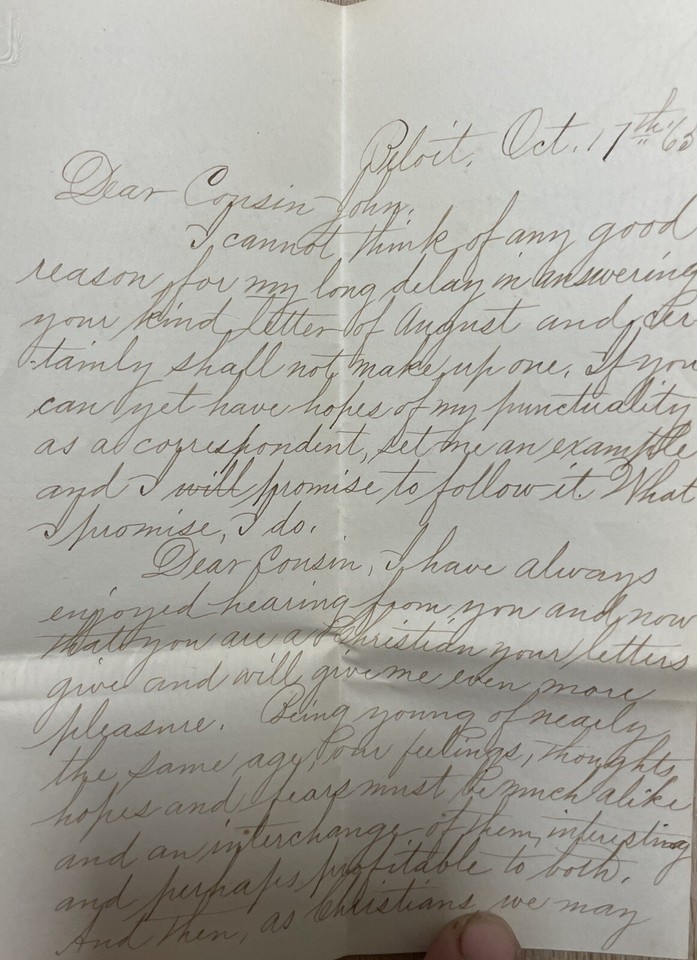 Beloit, Oct. 17th
Dear Cousin John,
I cannot think of any good
reason for my long delay in answering
your kind letter of August and cer-
-tainly shall not make up one. If you
can yet have hopes of my punctuality
as a correspondent, set me an example
and I will promise to follow it. What
I promise, I do.
Dear Cousin, I have always
enjoyed hearing from you and now
that you are a Christian your letters
give and will give me even more
pleasure. Being young of nearly
the same age, our feelings, thoughts,
hopes and fears must be much alike
and an interchange of them, interesting
and perhaps profitable to both.
And then, as Christians, we may